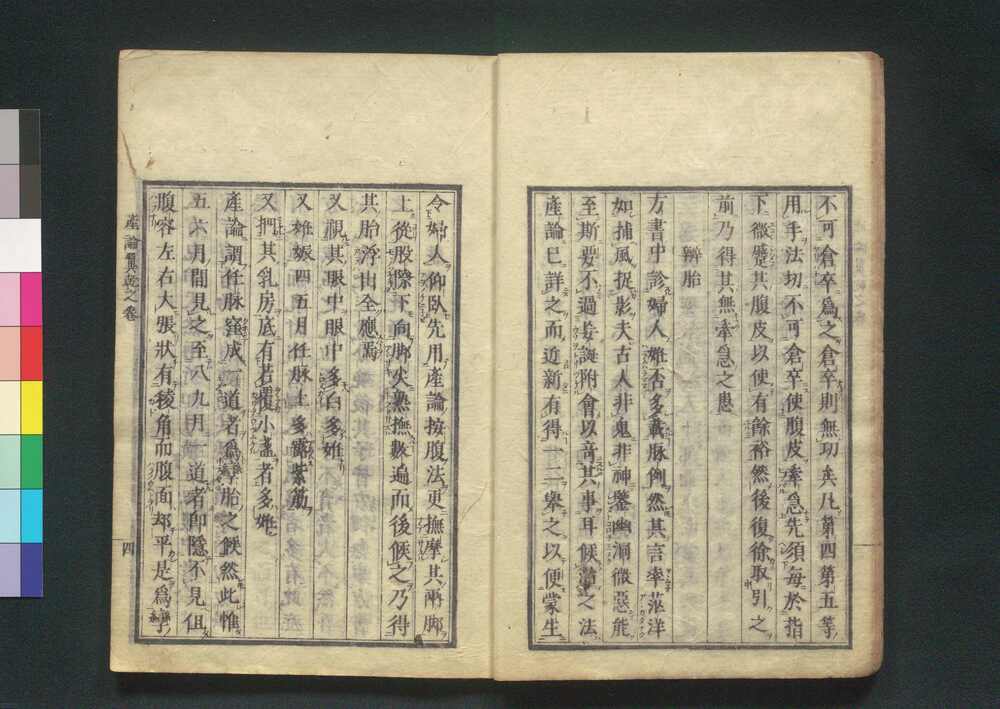 不可倉卒爲之倉卒則無功矣凡第四第五等
用手法切不可倉卒使腹皮牽急先須每於指
下微蹙其腹皮以使有餘裕然後復徐取引之
前乃得其無牽急之患
辨胎
方書中診婦人姙否多載脉例然其言率茫洋
如捕風捉影夫古人非鬼非神鑒幽洞微惡能
至斯要不過妄誕附會以奇其事耳候當之法
産論已詳之而近新有得一二擧之以便蒙生
令婦人仰臥先用產論按腹法更撫摩其兩脚
上從股際下向脚尖熟撫數遍而後候之乃得
其胎浮出全應焉
又視其眼中眼中多白多姙
又姙娠四五月任脉上多露紫筋
又捫其乳房底有若覆小盞者多姙
産論謂任脉窪成一道者爲孿胎之候然此惟
五六月間見之至八九月一道者即隱不見但
腹容左右大張狀有稜角而腹面却平是爲孿
産論翼乾之卷
四